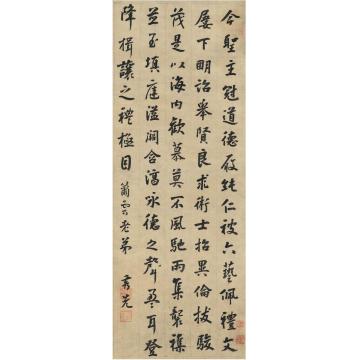 今聖主冠道德履純仁被六藝佩禮文
屢下明詔舉賢良求術士招異倫拔駿
茂是以海內歡慕莫不風馳雨集襲襍
並至填庭溢闕含淳詠德之聲盈耳登
降揖讓之禮極目 蕭雲老弟